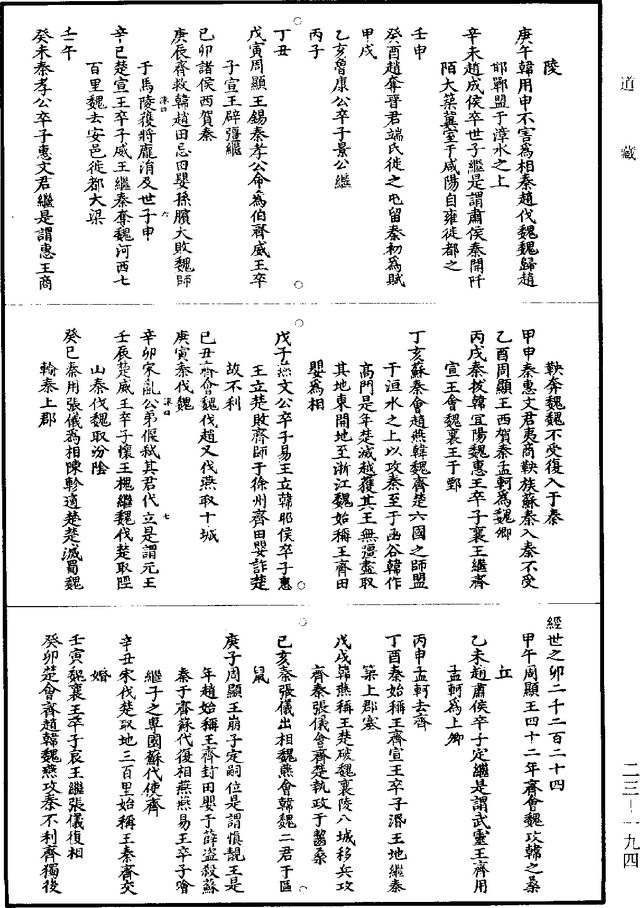 道藏
陵
庚午韓用申不害爲相秦趙伐魏魏歸趙
邯鄲盟于漳水之上
辛未趙成侯卒世子繼是謂肅侯秦開阡
陌大築冀宮于咸陽自雍徙都之
壬申
癸酉趙奪晉君端氏徙之屯留秦初爲賦
甲戌
乙亥魯康公卒子景公繼
丙子
丁丑
戊寅周顯王錫秦孝公命爲伯齊威王卒
子宣王辟彊繼
己卯諸侯西賀秦
庚辰齊救韓趙田忌田嬰孫臏大敗魏師
于馬陵獲將龐涓及世子申
辛巳楚宣王卒子威王繼秦奪魏河西七
百里魏去安邑徙都大梁
壬午
癸未秦孝公卒子惠文君繼是謂惠王商
鞅奔魏魏不受復入于秦
甲申秦惠文君夷商鞅族蘇秦入秦不受
乙酉周顯王西賀秦孟軻爲魏卿
丙戌秦拔韓宜陽魏惠王卒子襄王繼齊
宣王會魏襄王于鄄
丁亥蘇秦會趙燕韓魏齊楚六國之師盟
于洹水之上以攻秦至于函谷韓作
高門是年楚滅越獲其王無彊盡取
其地東開地至浙江魏始稱王齊田
嬰爲相
戊子燕文公卒子易王立韓昭侯卒子惠
王立楚敗齊師于徐州齊田嬰詐楚
故不利
己丑齊會魏伐趙又伐燕取十城
庚寅秦伐魏
辛卯宋亂公弟偃弒其君代立是謂元王
壬辰楚威王卒子懷王槐繼魏伐楚取陘
山秦伐魏取汾陰
癸巳秦用張儀爲相陳軫適楚楚滅蜀魏
輸秦上郡
經世之卯二千二百二十四
甲午周顯王四十二年齊會魏攻韓之桑
丘
乙未趙肅侯卒子定繼是謂武靈王齊用
孟軻爲上卿
丙申孟軻去齊
丁酉秦始稱王齊宣王卒子湣王地繼秦
築上郡塞
戊戌韓燕稱王楚破魏襄陵八城移兵攻
齊秦張儀會齊楚執政于齧桑
己亥秦張儀出相魏燕會韓魏二君于區
鼠
庚子周顯王崩子定嗣位是謂慎靚王是
年趙始稱王齊封田嬰于薛盜殺蘇
秦于齊蘇代復相燕燕易王卒子噲
繼子之專國蘇代使齊
辛丑宋伐楚取地三百里始稱王秦齊交
婚
壬寅魏襄王卒子哀王繼張儀復相
癸卯楚會齊趙韓魏燕攻秦不利齊獨後
二三—一九四